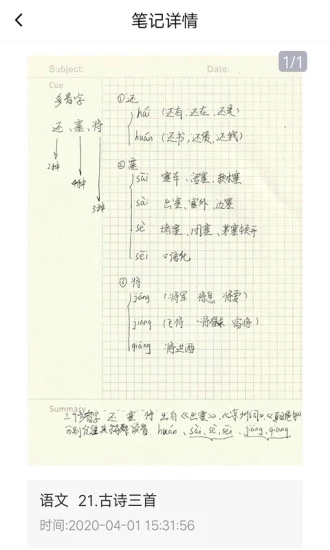 笔记详情
1/1
Subject:
Date:
Cue
多音字
还、塞、将
2种
4种
3种
①还
hái (还有、还在、还是)
huán (还书、还债、还钱)
②塞
sāi 塞车、活塞、软木塞
sài 出塞、塞外、边塞
sè 堵塞、闭塞、茅塞顿开
sēi 口语化
③将
jiāng (将军 将息 将要)
jiàng
qiāng 将进酒
Summary
三个多音字 还 塞 将 出自《出塞》、《凉州词》、
huán、sài、sè、sēi、jiāng、qiāng
语文 21.古诗三首
时间:2020-04-01 15:31:56